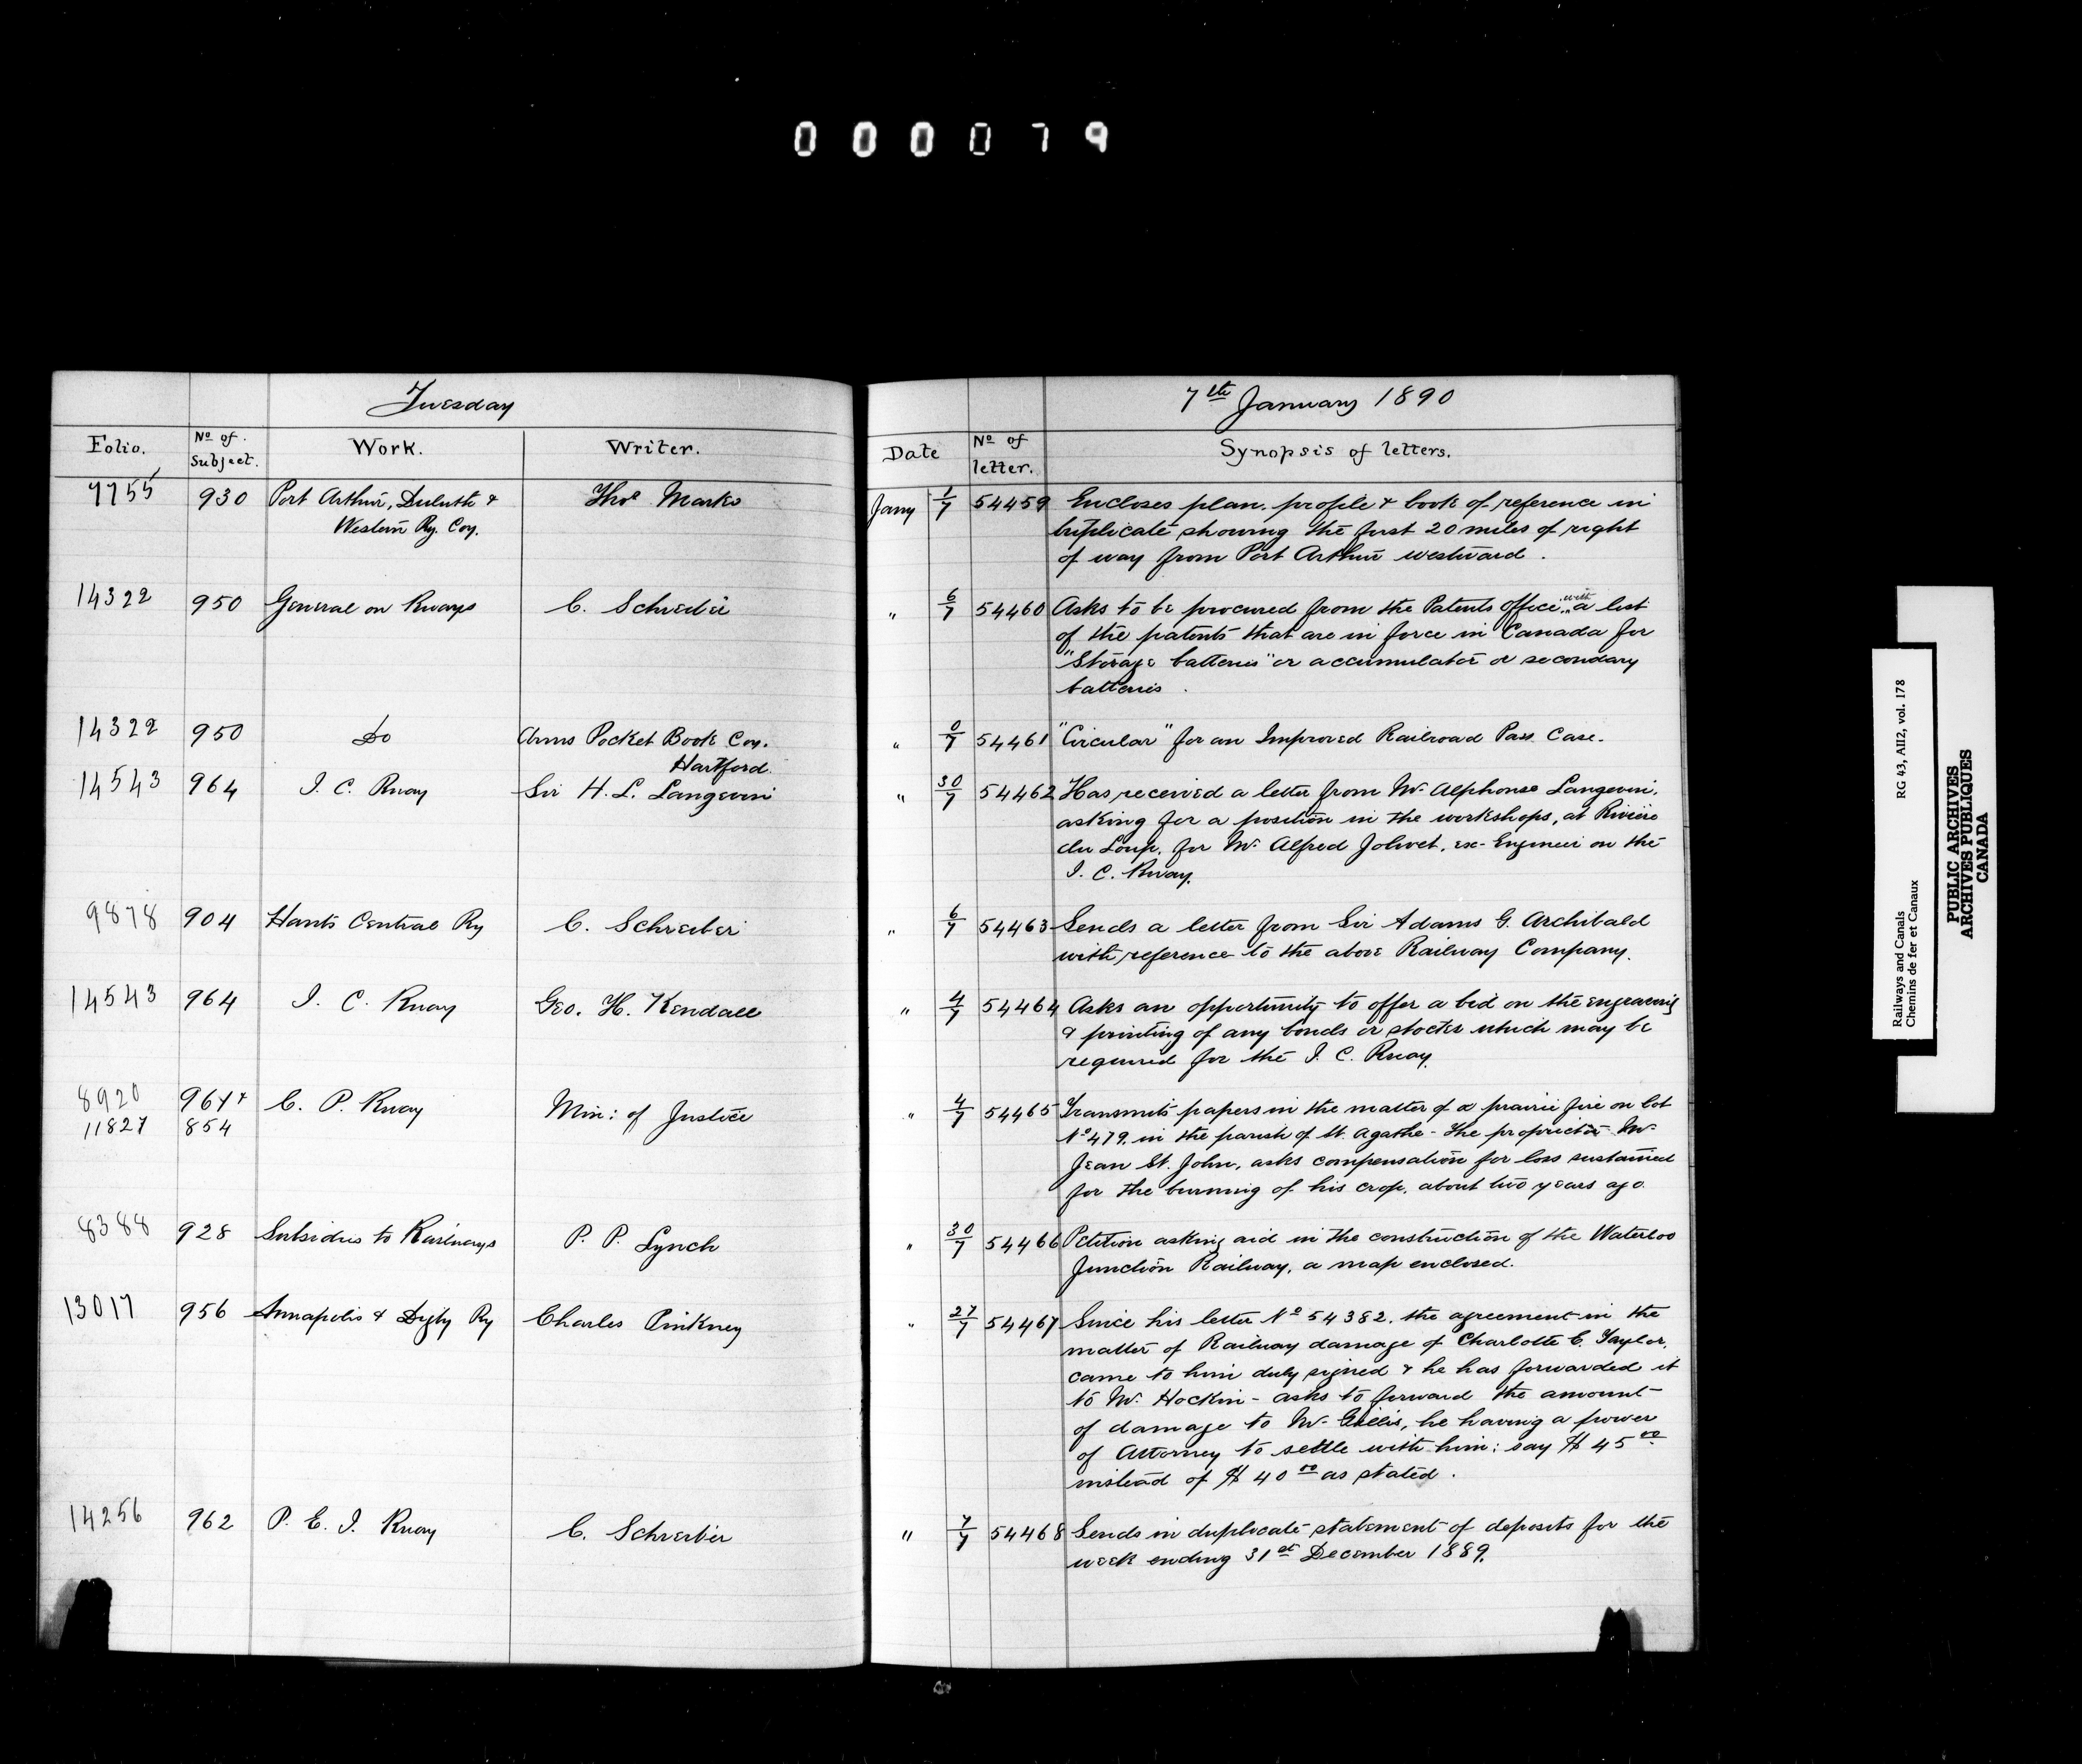 000079
Tuesday
7th January 1890
Folio. No of Subject. Work. Writer. Date No of letter. Synopsis of letters.
7755 930 Port Arthur, Duluth & Thos Marks Jany 1/7 54459 Encloses plan, profile & book of reference in
Western Ry. Coy. triplicate showing the first 20 miles of right
of way from Port Arthur westward.
14322 950 General on Rways C. Schreiber " 6/7 54460 Asks to be procured from the Patents office, with a list
of the patents that are in force in Canada for
"Storage batteries" or accumulator or secondary
batteries.
14322 950 Do Arms Pocket Book Coy. " 0/7 54461 "Circular" for an Improved Railroad Pass Case.
Hartford.
14543 964 I. C. Rway Sir H. L. Langevin " 30/7 54462 Has received a letter from Mr Alphonse Langevin,
asking for a position in the workshops, at Rivière
du Loup, for Mr Alfred Jolivet, ex-Engineer on the
I. C. Rway.
9878 904 Hants Central Ry C. Schreiber " 6/7 54463 Sends a letter from Sir Adams G. Archibald
with reference to the above Railway Company.
14543 964 I. C. Rway Geo. H. Kendall " 4/7 54464 Asks an opportunity to offer a bid on the engraving
& printing of any bonds or stocks which may be
required for the I. C. Rway.
8920 964 & C. P. Rway Min: of Justice " 4/7 54465 Transmits papers in the matter of a prairie fire on lot
11827 854 No 479, in the parish of St. Agathe - The proprietor Mr
Jean St. John, asks compensation for loss sustained
for the burning of his crop, about two years ago.
8388 928 Subsidies to Railways P. P. Lynch " 30/7 54466 Petition asking aid in the construction of the Waterloo
Junction Railway, a map enclosed.
13017 956 Annapolis & Digby Ry Charles Pinkney " 27/7 54467 Since his letter No 54382, the agreement in the
matter of Railway damage of Charlotte E. Taylor,
came to him duly signed & he has forwarded it
to Mr Hockin - asks to forward the amount
of damage to Mr Gillis, he having a power
of Attorney to settle with him: say $45 00
instead of $40 00 as stated.
14256 962 P. E. I. Rway C. Schreiber " 7/7 54468 Sends in duplicate statement of deposits for the
week ending 31st December 1889.
Railways and Canals RG 43, AII2, vol. 178
Chemins de fer et Canaux
PUBLIC ARCHIVES
ARCHIVES PUBLIQUES
CANADA